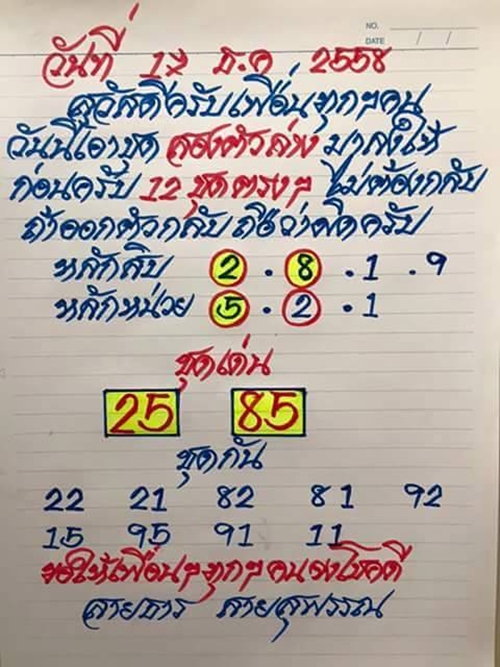 NO.
DATE / /
วันที่ 17 ธ.ค 2558
สวัสดีครับเพื่อนๆทุกๆคน
วันนี้เอาชุด สองตัวล่าง มาลงให้
ก่อนครับ 12 ชุดตรงๆ ไม่ต้องกลับ
ถ้าออกตัวกลับ ถือว่าผิดครับ
หลักสิบ 2 . 8 . 1 . 9
หลักหน่วย 5 . 2 . 1
ชุดเด่น
25 85
ชุดกัน
22 21 82 81 92
15 95 91 11
ขอให้เพื่อนๆทุกๆคนจงโชคดี
สายธาร สายสุพรรณ